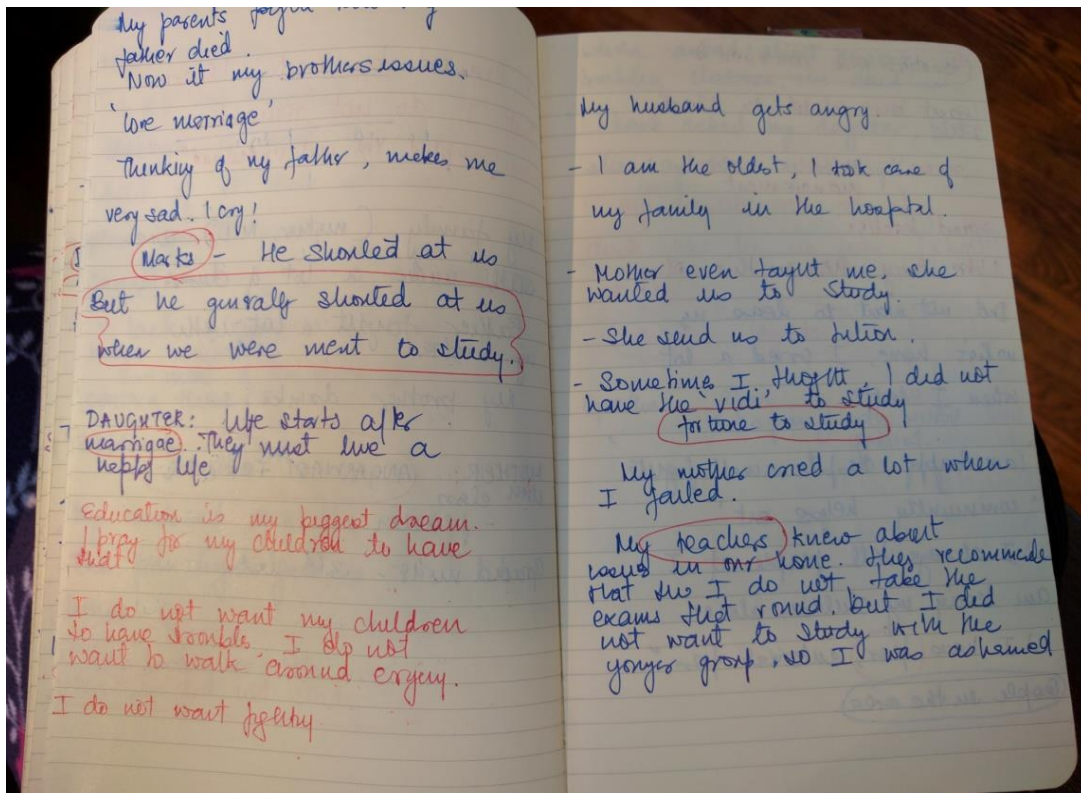 My parents
father died.
Now it my brothers issues.
'love marriage'
Thinking of my father, makes me
very sad. I cry!
Marks - He shouted at us
But he generally shouted at us
when we were ment to study.
DAUGHTER: life starts after
marrigae. They must live a
happy life
Education is my biggest dream.
I pray for my children to have
that
I do not want my children
to have trouble, I do not
want to walk around crying.
I do not want fighting
My husband gets angry.
- I am the oldest, I took care of
my family in the hospital.
- Mother even taught me, she
wanted us to study.
- She send us to tution.
- Sometime I thoght, I did not
have the 'vidi' to study
fortune to study
My mother cried a lot when
I failed.
My teachers knew about
issues in our home. they recommede
that I do not take the
exams that round but I did
not want to study with the
yonger group, so I was ashamed